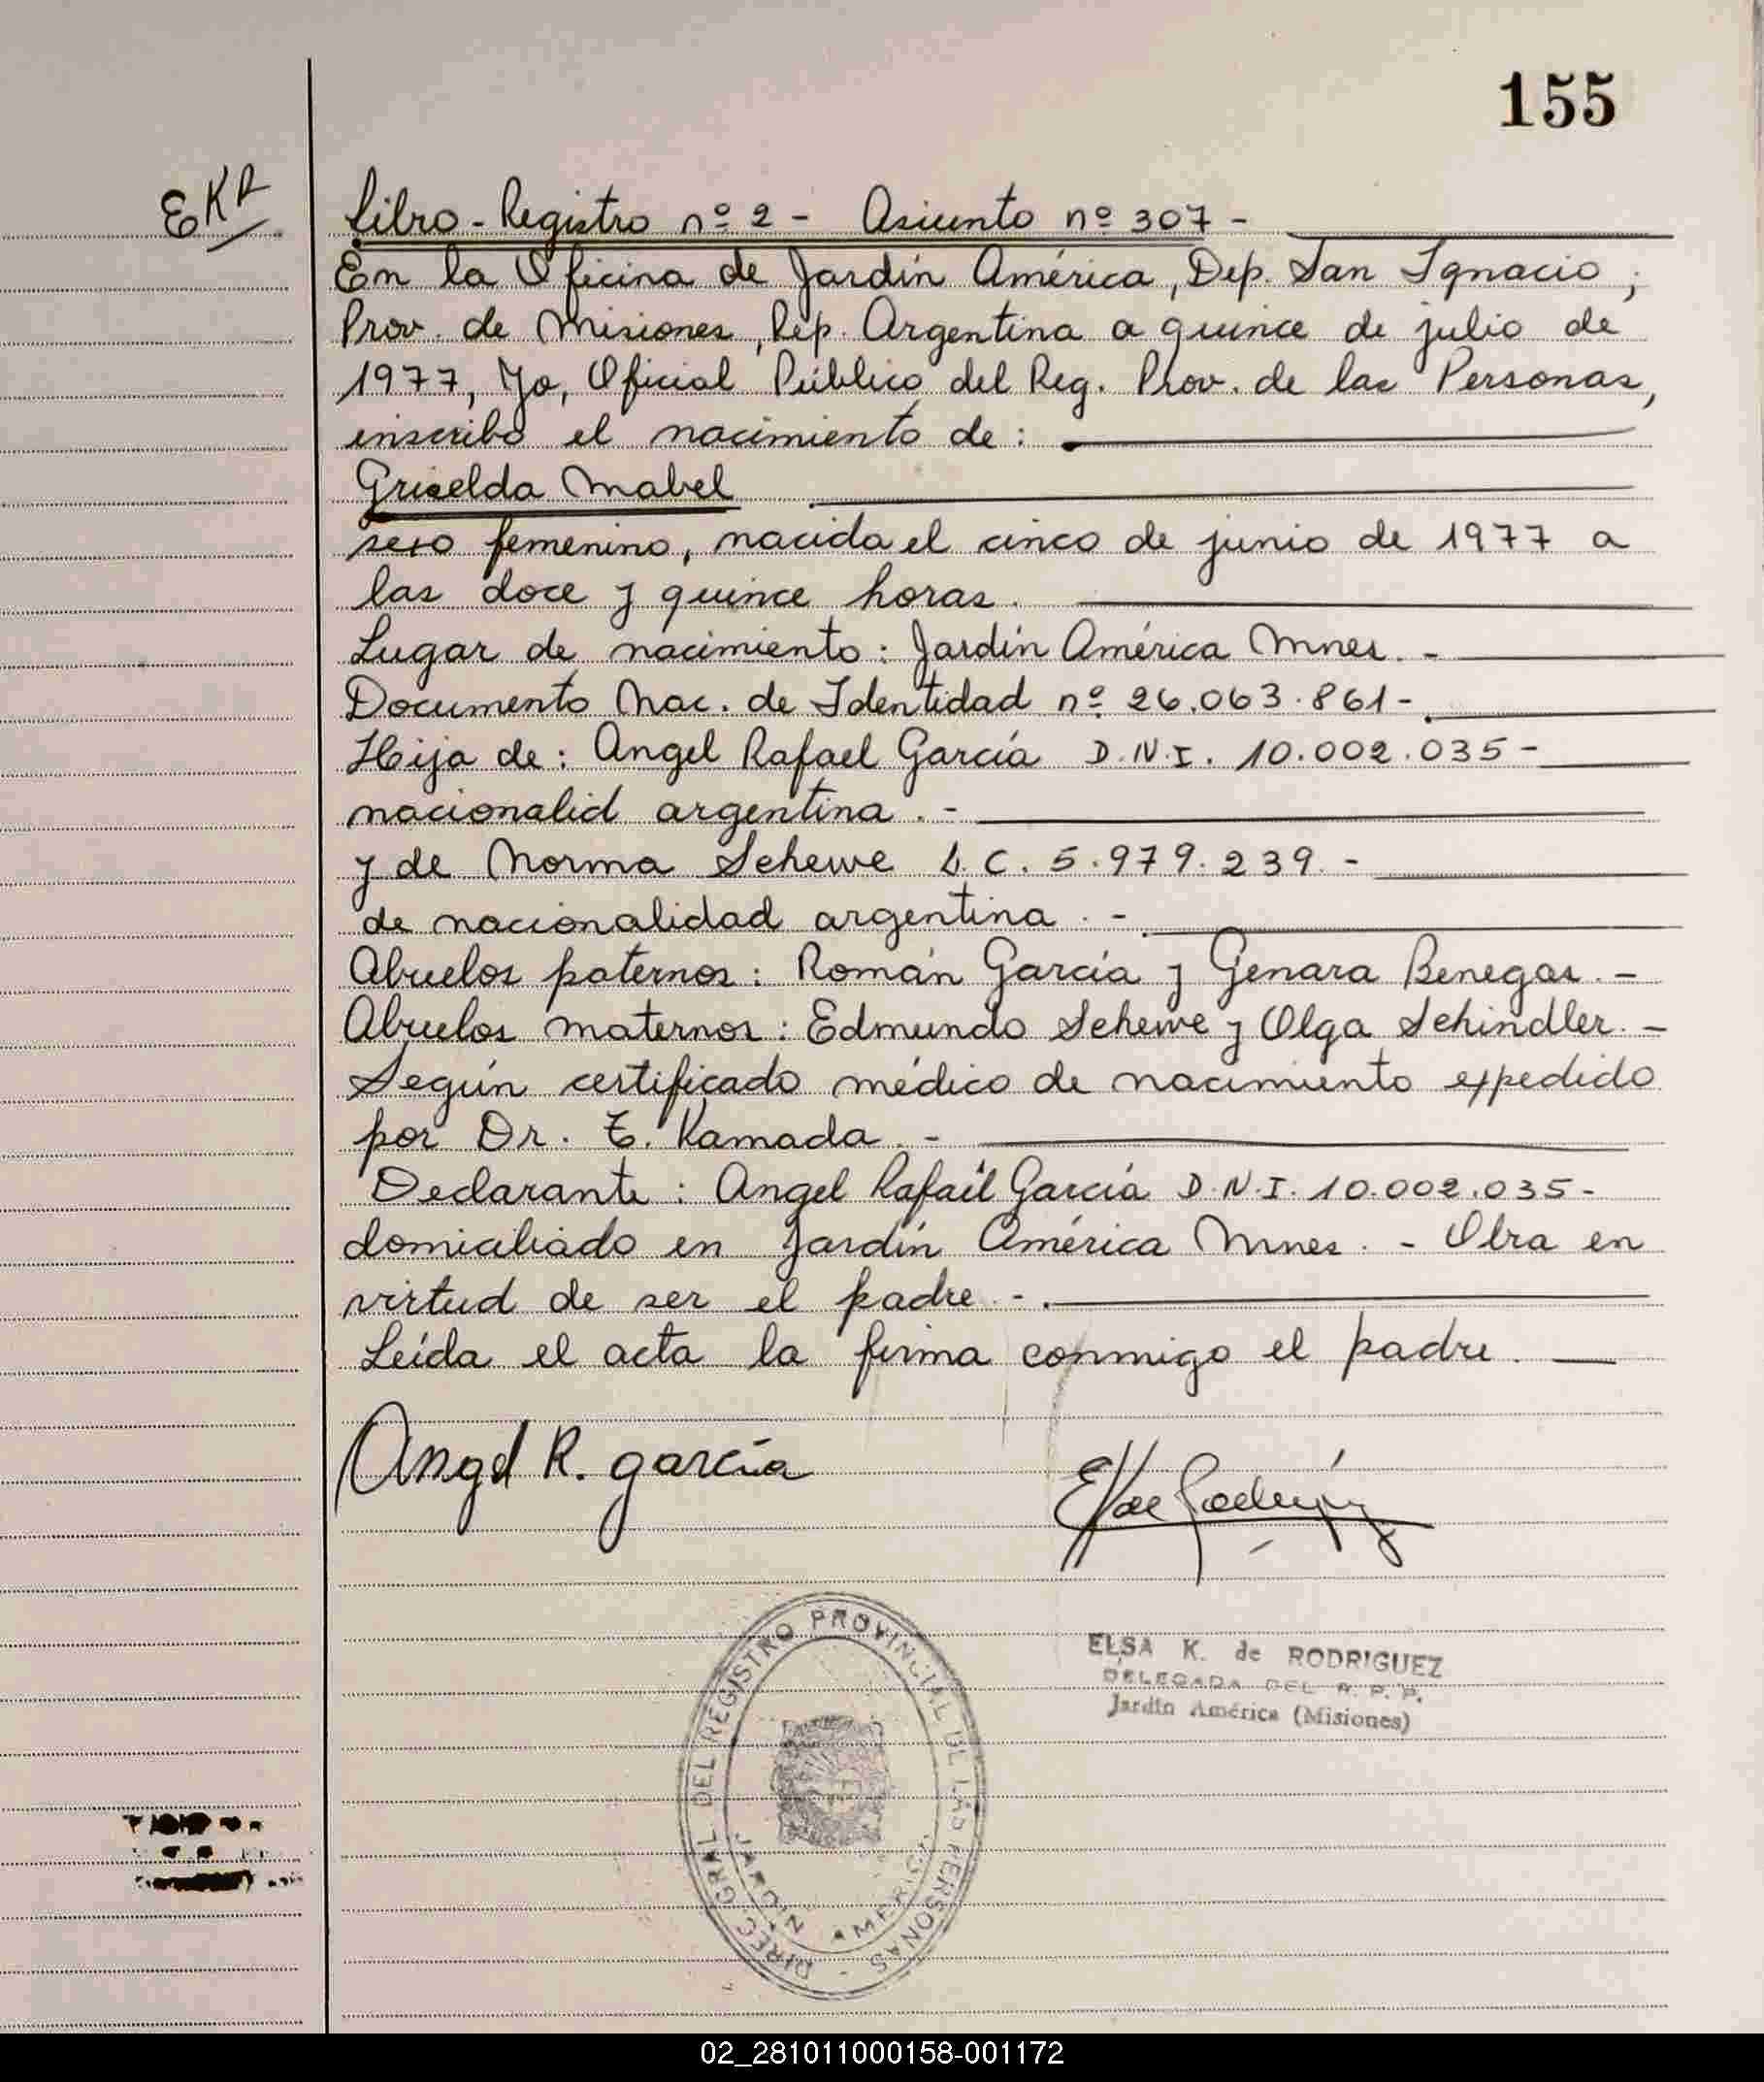 155
EKR
Libro-Registro nº 2 - Asiento nº 307 -
En la Oficina de Jardín América, Dep. San Ignacio,
Prov. de Misiones, Rep. Argentina a quince de julio de
1977, Yo, Oficial Público del Reg. Prov. de las Personas,
inscribo el nacimiento de:
Griselda Mabel
sexo femenino, nacida el cinco de junio de 1977 a
las doce y quince horas.
Lugar de nacimiento: Jardín América Mnes. -
Documento Nac. de Identidad nº 26.063.861-.
Hija de: Angel Rafael García D.N.I. 10.002.035-
nacionalid argentina. -
y de Norma Schewe L.C. 5.979.239. -
de nacionalidad argentina. -
Abuelos paternos: Román García y Genara Benegas. -
Abuelos maternos: Edmundo Schewe y Olga Schindler. -
Según certificado médico de nacimiento expedido
por Dr. T. Kamada. -
Declarante: Angel Rafaél García D.N.I. 10.002.035-
domiciliado en Jardín América Mnes. - Obra en
virtud de ser el padre. -.
Leída el acta la firma conmigo el padre.
Angel R. garcía
EK de Rodríguez
DIREC. GRAL. DEL REGISTRO PROVINCIAL DE LAS PERSONAS -
JARDIN AMERICA
ELSA K. de RODRIGUEZ
DELEGADA DEL R. P. P.
Jardín América (Misiones)
02_281011000158-001172